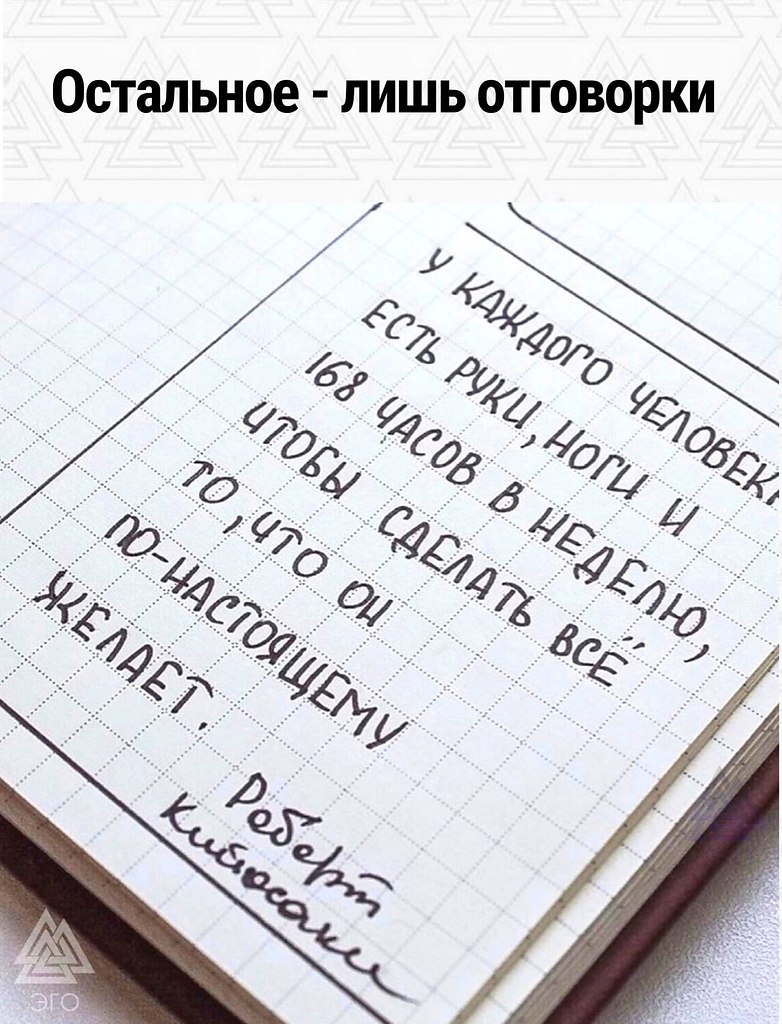 Остальное - лишь отговорки
У КАЖДОГО ЧЕЛОВЕКА
ЕСТЬ РУКИ, НОГИ И
168 ЧАСОВ В НЕДЕЛЮ,
ЧТОБЫ СДЕЛАТЬ ВСЁ
ТО, ЧТО ОН
ПО-НАСТОЯЩЕМУ
ЖЕЛАЕТ.
Роберт
Кийосаки
ЭГО